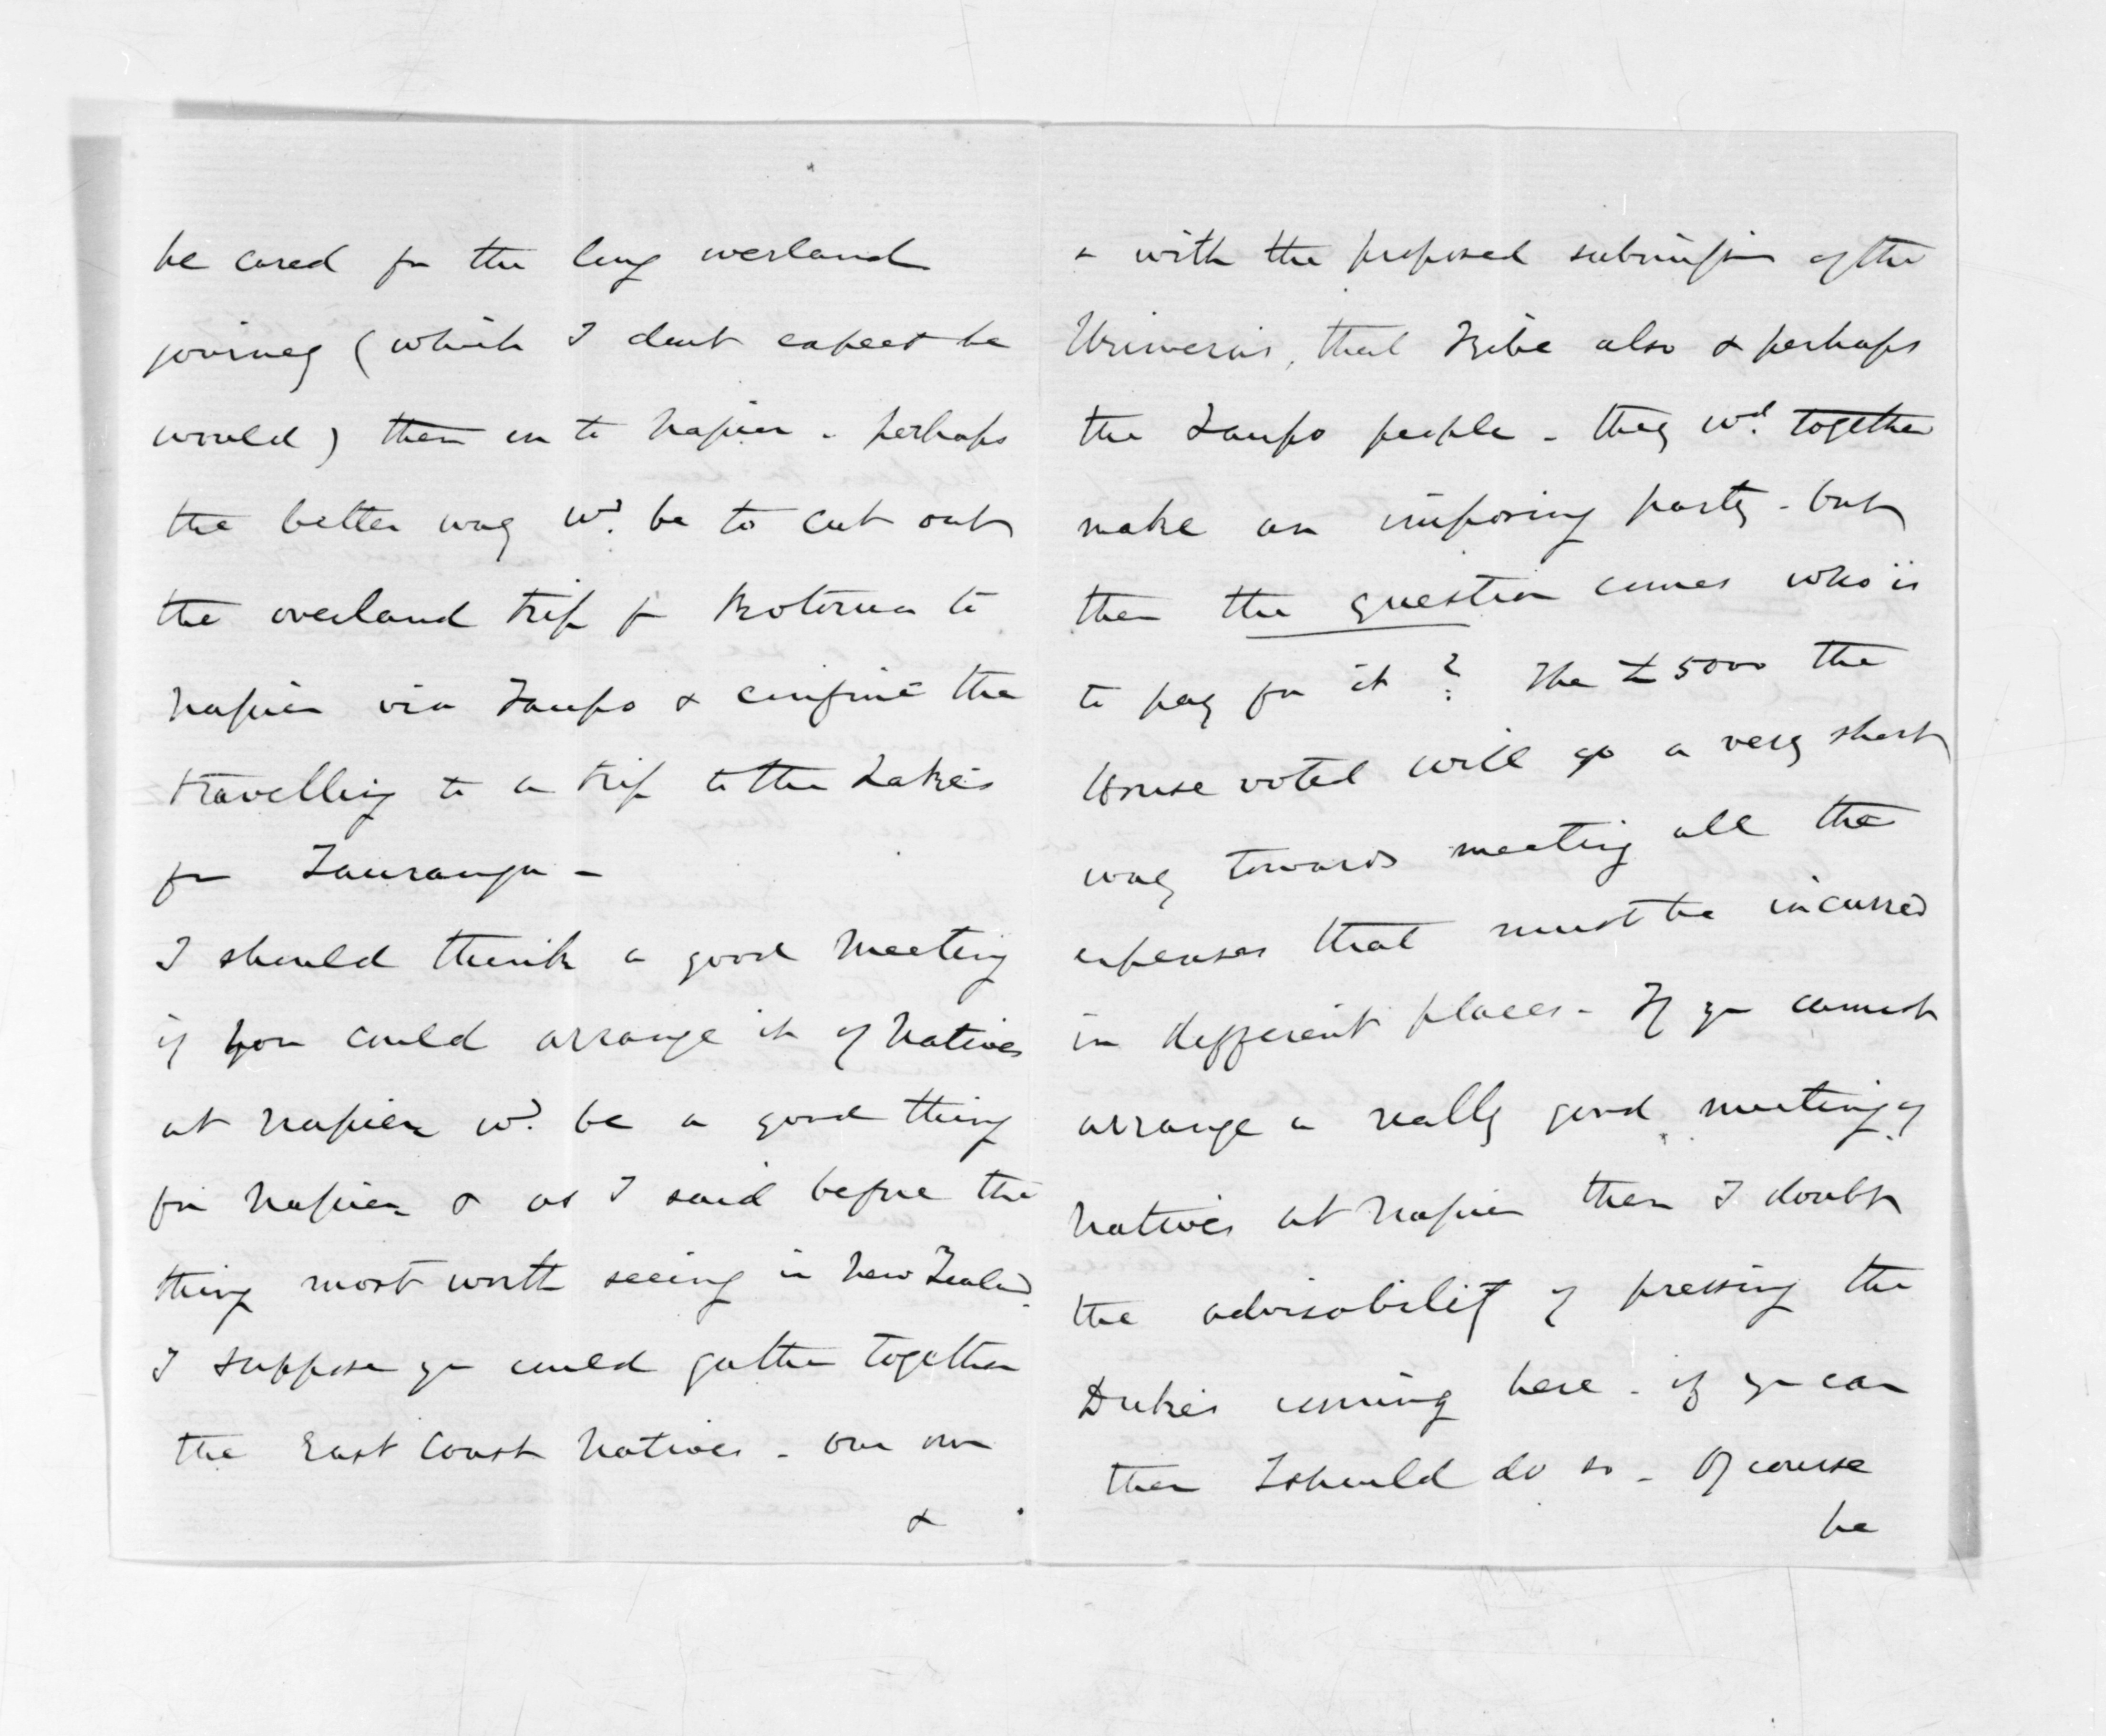 be cared for the long overland
journey (which I dont expect he
would) then on to Napier - perhaps
the better way wd. be to cut out
the overland trip fr Rotorua to
Napier via Taupo & confine the
travelling to a trip to the Lakes
fr Tauranga -
I should think a good meeting
if you could arrange it of Natives
at Napier wd. be a good thing
for Napier & as I said before the
thing most worth seeing in New Zealand.
I suppose yu could gather together
the East Coast Natives - our own
&
& with the proposed submission of the
Uriweras, that Tribe also & perhaps
the Taupo people - they wd. together
make an imposing party - but
then the question comes who is
to pay for it? The £5000 the
House voted will go a very short
way towards meeting all the
expenses that must be incurred
in different places - If yu cannot
arrange a really good meeting of
Natives at Napier then I doubt
the advisability of pressing the
Dukes coming here - if yu can
then I should do so - Of course
he